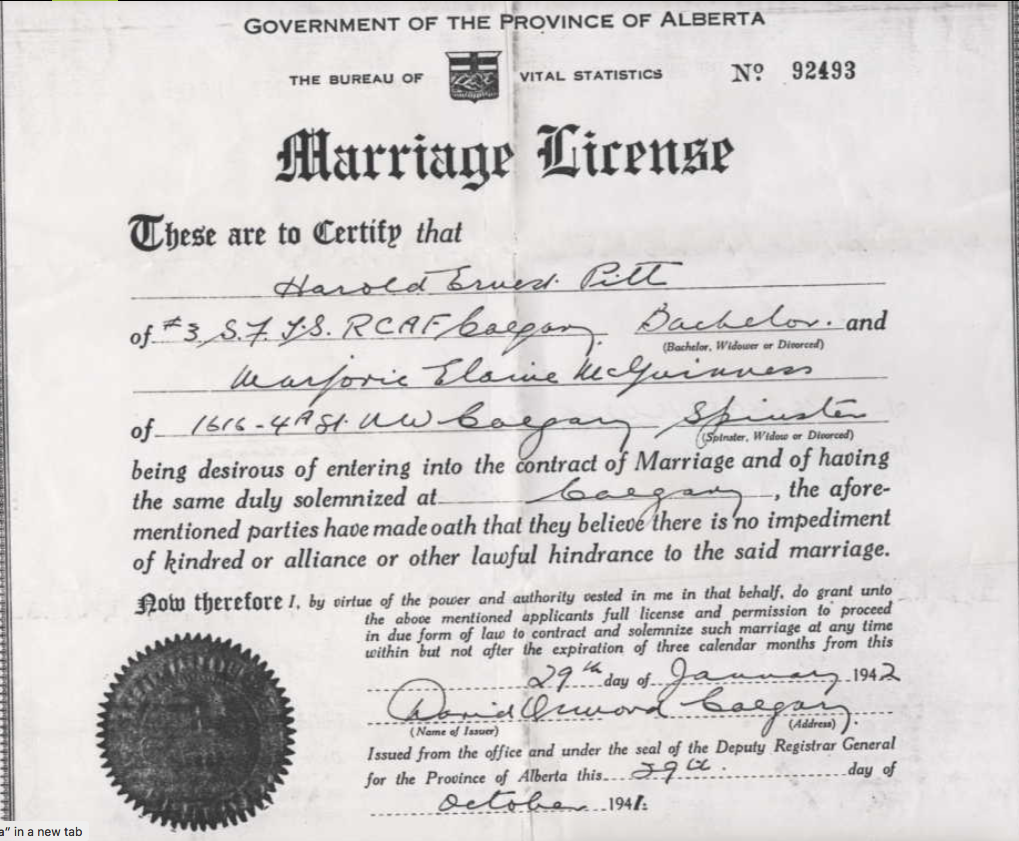 GOVERNMENT OF THE PROVINCE OF ALBERTA
THE BUREAU OF VITAL STATISTICS No 92493
Marriage License
These are to Certify that
Harold Ernest Pitt
of #3 S.F.T.S. RCAF Calgary Bachelor. and
(Bachelor, Widower or Divorced)
Marjorie Elaine McGuinness
of 1616-4A St. NW Calgary Spinster
(Spinster, Widow or Divorced)
being desirous of entering into the contract of Marriage and of having
the same duly solemnized at Calgary, the afore-
mentioned parties have made oath that they believe there is no impediment
of kindred or alliance or other lawful hindrance to the said marriage.
Now therefore I, by virtue of the power and authority vested in me in that behalf, do grant unto
the above mentioned applicants full license and permission to proceed
in due form of law to contract and solemnize such marriage at any time
within but not after the expiration of three calendar months from this
29th day of January 1942
David Calgary
(Name of Issuer) (Address).
Issued from the office and under the seal of the Deputy Registrar General
for the Province of Alberta this 29th. day of
October 1941.
a" in a new tab